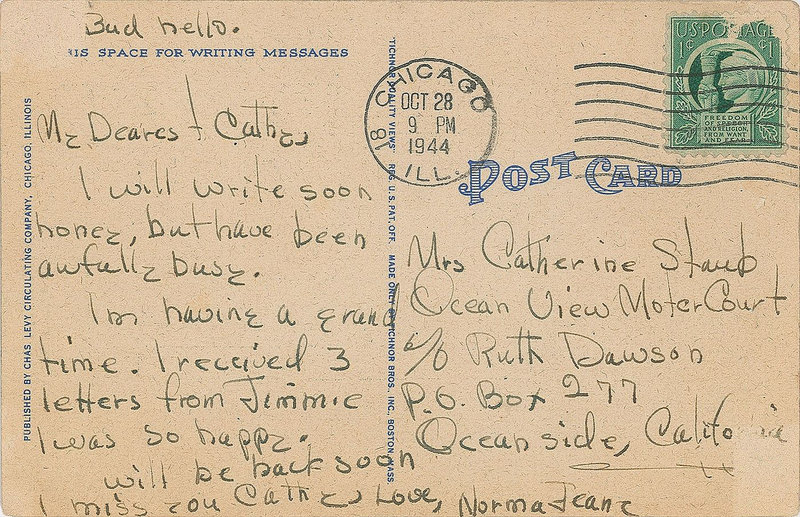 Bud hello.
IS SPACE FOR WRITING MESSAGES
My Dearest Cathy,
I will write soon
honey, but have been
awfully busy.
I'm having a grand
time. I received 3
letters from Jimmie
I was so happy.
will be back soon
I miss you Cathy, Love, Norma Jeane
PUBLISHED BY CHAS LEVY CIRCULATING COMPANY, CHICAGO, ILLINOIS
"TICHNOR QUALITY VIEWS" REG. U. S. PAT. OFF. MADE ONLY BY TICHNOR BROS. INC., BOSTON, MASS.
CHICAGO
18
OCT 28
9 PM
1944
ILL.
U.S. POSTAGE
1¢ ¢1
FREEDOM
OF SPEECH
AND RELIGION,
FROM WANT
AND FEAR
POST CARD
Mrs Catherine Staub
Ocean View Moter Court
c/o Ruth Dawson
P.O. Box 277
Oceanside, California